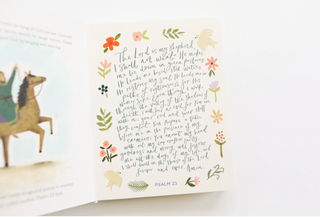 The Lord is my Shepherd,
I shall not want. He makes
me lie down in green pastures
He leads me beside still waters
He restores my soul. He leads me in
paths of righteousness for His
name's sake. Even though I walk
through the valley of the shadow of
death, I will fear no evil, for you are
with me; your rod and your staff
they comfort me. You prepare a table
before me in the presence of my
enemies; You anoint my head
with oil; my cup overflows. Surely
goodness and mercy will follow
me all the days of my life and
I shall dwell in the House of the Lord
forever and ever. Amen.
PSALM 23